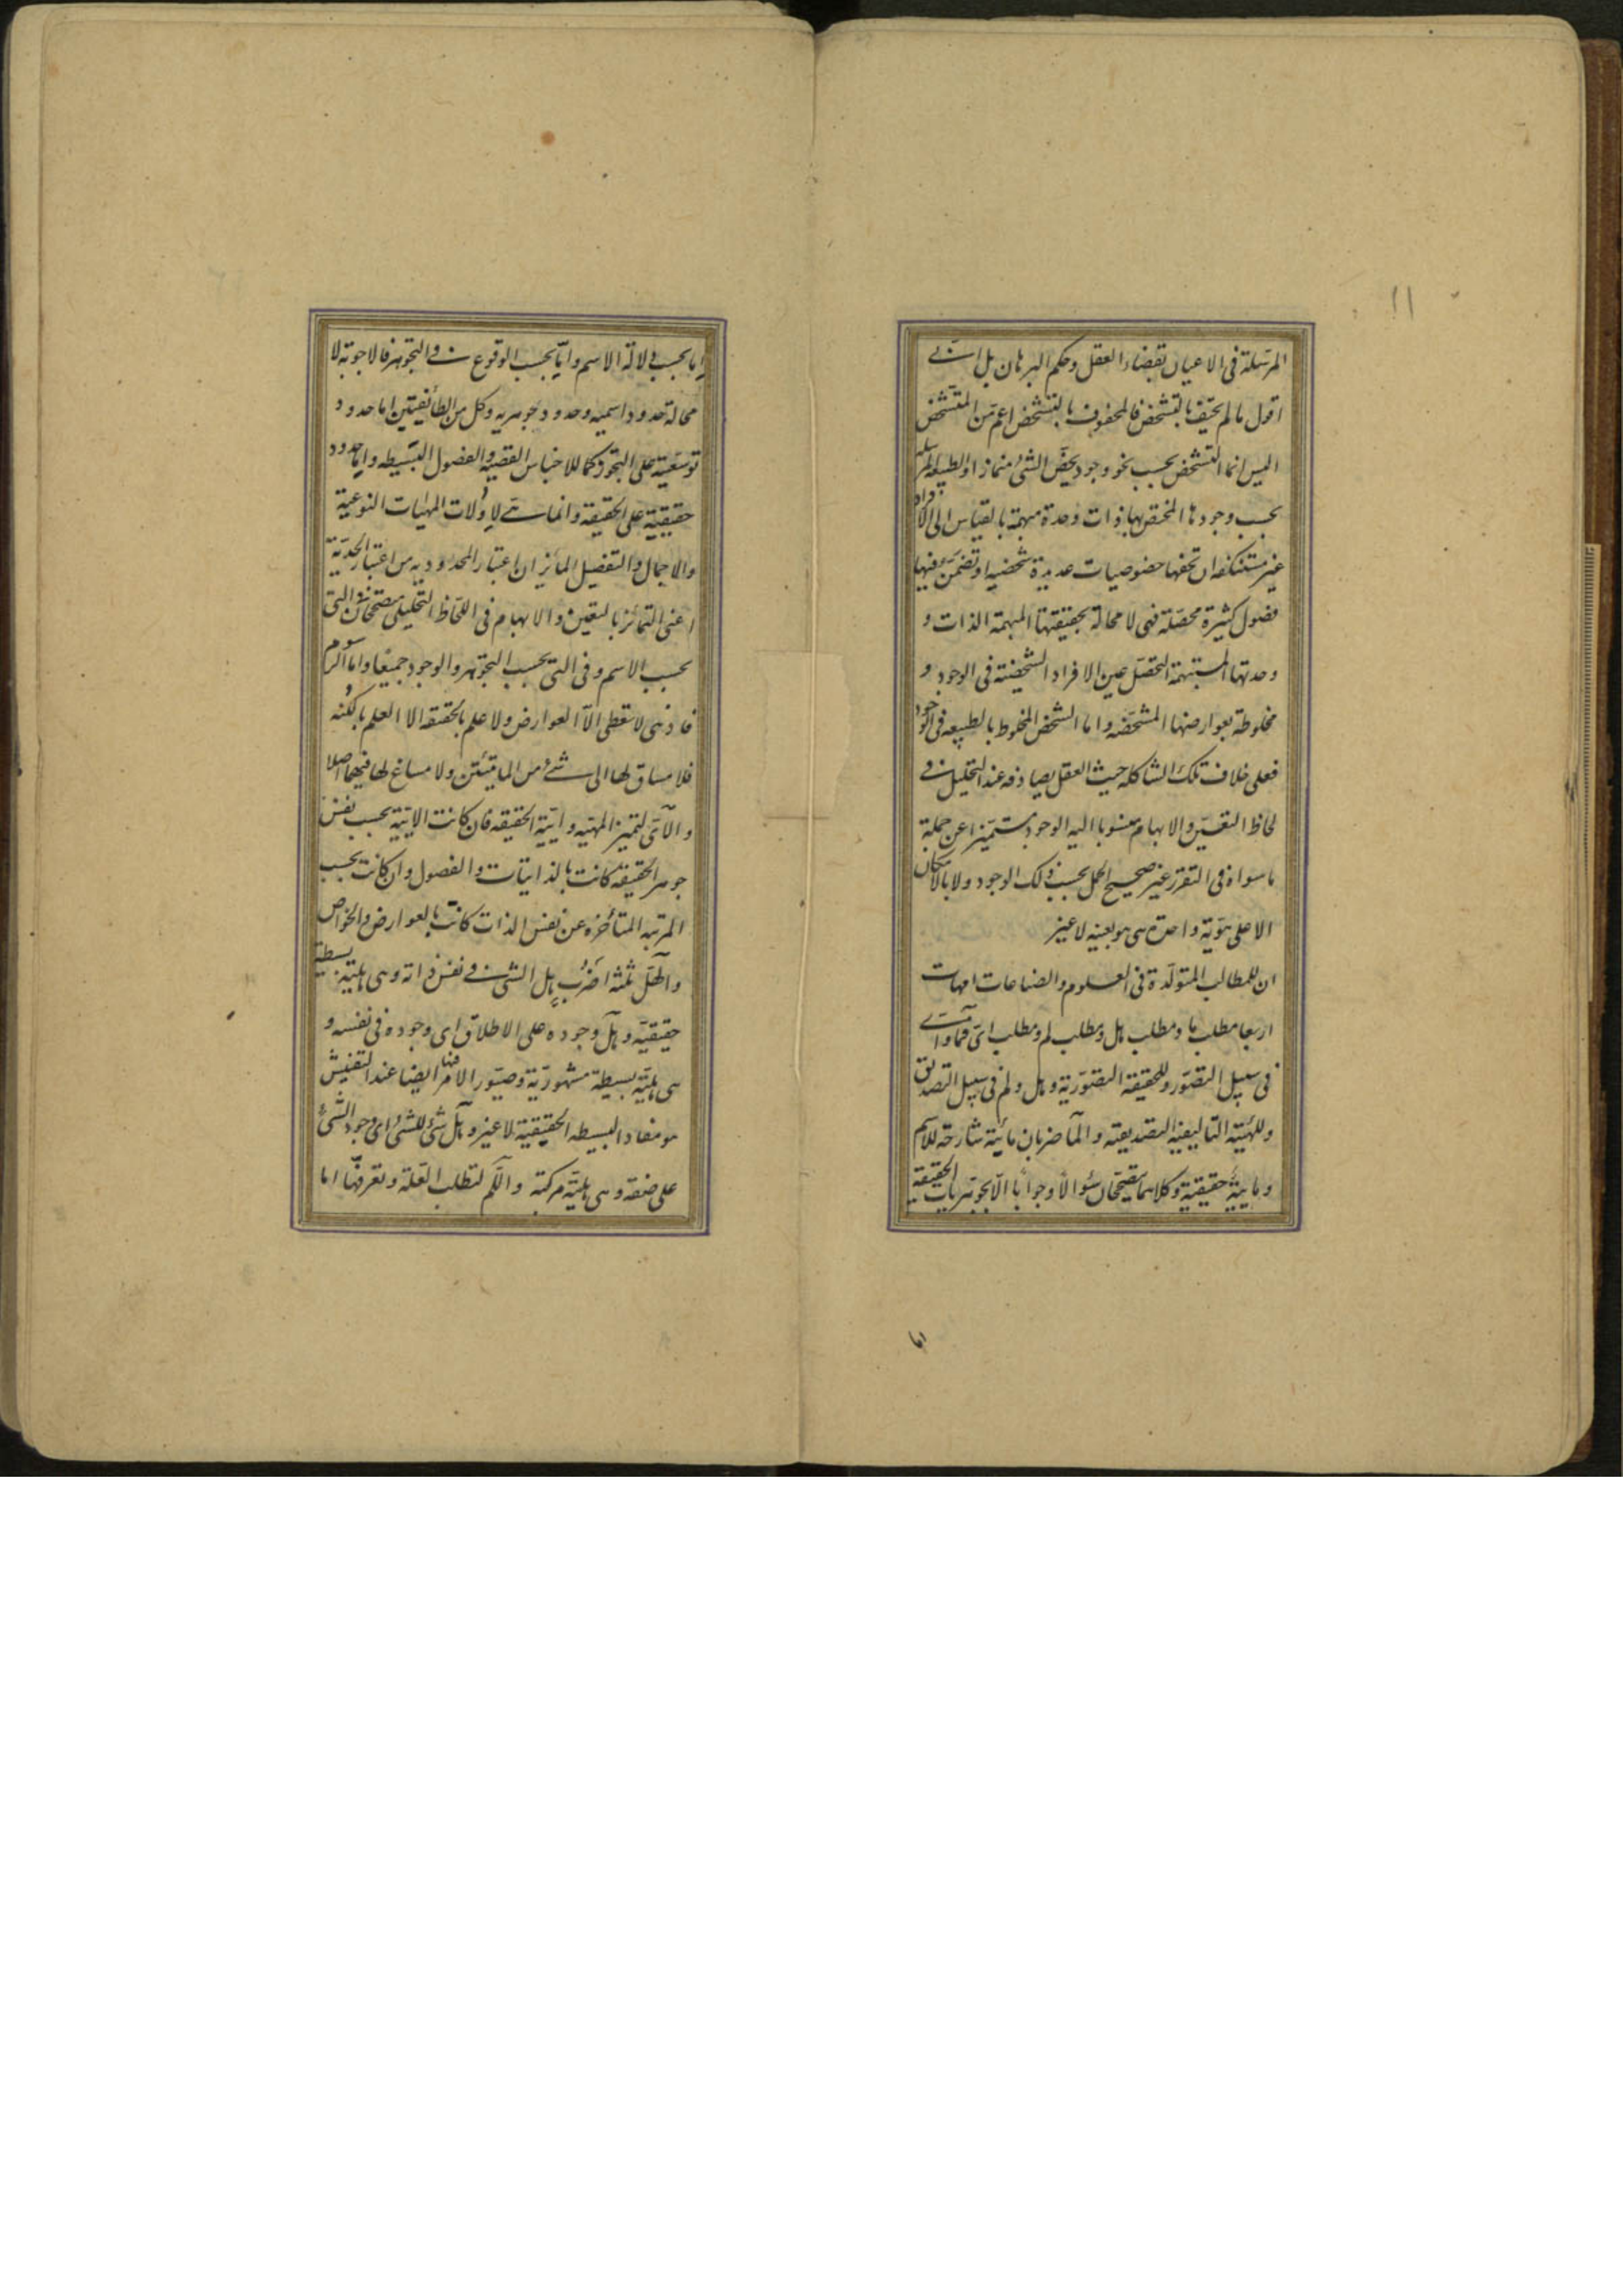 ١١
المرسلة في الاعيان بقضاء العقل وحكم البرهان بل انى
اقول ما لم يحتف بالتشخص فالمحفوف بالتشخص اعم من المتشخص
اليس انما التشخص بحسب نحو وجود يخص الشئ منمازا والطبيعة المرسلة
بحسب وجودها المختص بها ذات وحدة مبهمة بالقياس الى الافراد
غير مستنكفه ان تحفها خصوصيات عديدة شخصيه او تضمن فيها
فصول كثيرة محصلة فهى لا محالة بحقيقتها المبهمة الذات و
وحدتها المستبهمة التحصل عين الافراد الشخصية في الوجود و
مخلوطة بعوارضها المشخصه واما الشخص المخلوط بالطبيعه في الوجود
فعلى خلاف تلك الشاكله حيث العقل يصادفه عند التحليل في
لحاظ التعين والابهام منسوبا اليه الوجود متميزا عن جملة
ما سواه في التقرر غير صحيح الحمل بحسب ذلك الوجود ولا بالامكان
الا على هوية واحدة هى هو بعينه لا غير
ان للمطالب المتولدة في العلوم والصناعات امهات
اربعا مطلب ما ومطلب هل ومطلب لم ومطلب اى فما واى
في سبيل التصور وللحقيقة التصورية وهل ولم في سبيل التصديق
وللهيئة التاليفية التصديقية والما ضربان مائية شارحة للاسم
ومائية حقيقية وكلاهما يقتنحان سؤالا وجوابا الا بجوهريات الحقيقة
اما
اما بحسب دلالة الاسم واما بحسب الوقوع في التجوهر فالاجوبة لا
محالة حدود اسميه وحدود جوهريه وكل من الطائفتين اما حدود
توسعية على التجوز كما للاجناس القصيه والفصول البسيطه واما حدود
حقيقية على الحقيقه وانما هى لاولات المهيات النوعية
والاجمال والتفصيل المائزان اعتبار المحدودية من اعتبار الحدية
اعنى التمائز بالتعين والابهام في اللحاظ التحليلى في التى
بحسب الاسم وفى التى بحسب التجوهر والوجود جميعا واما الرسوم
فاذ هى لا تعطى الا العوارض ولا علم بالحقيقه الا العلم بالكنه
فلا مساق لها الى شئ من المايتين ولا مساغ لها فيهما اصلا
والاى لتميز المهيه وايية الحقيقه فان كانت الايية بحسب نفس
جوهر الحقيقة كانت بالذاتيات والفصول وان كانت بحسب
المرتبه المتأخره عن نفس الذات كانت بالعوارض والخواص
والهل ثلثة اضرب هل الشئ في نفس ذاته وهى هلية بسيطة
حقيقية وهل وجوده على الاطلاق اى وجوده في نفسه و
هى هلية بسيطة مشهورية وصيور الامر فيها ايضا عند التفتيش
هو مفاد البسيطه الحقيقية لا غير وهل شئ للشئ اى وجود الشئ
على صفة وهى هلية مركبة واللم لتطلب العلة وتعرفها اما